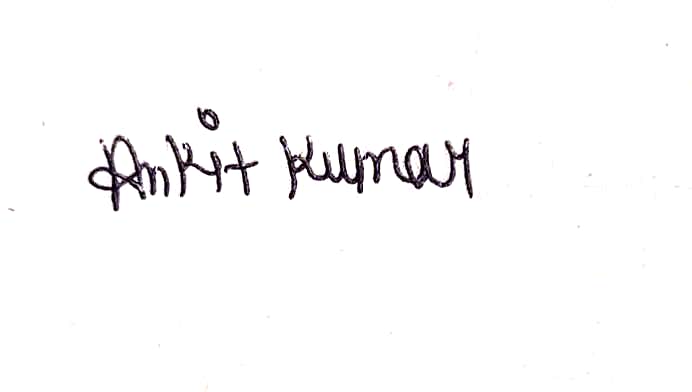 Ankit Kumar